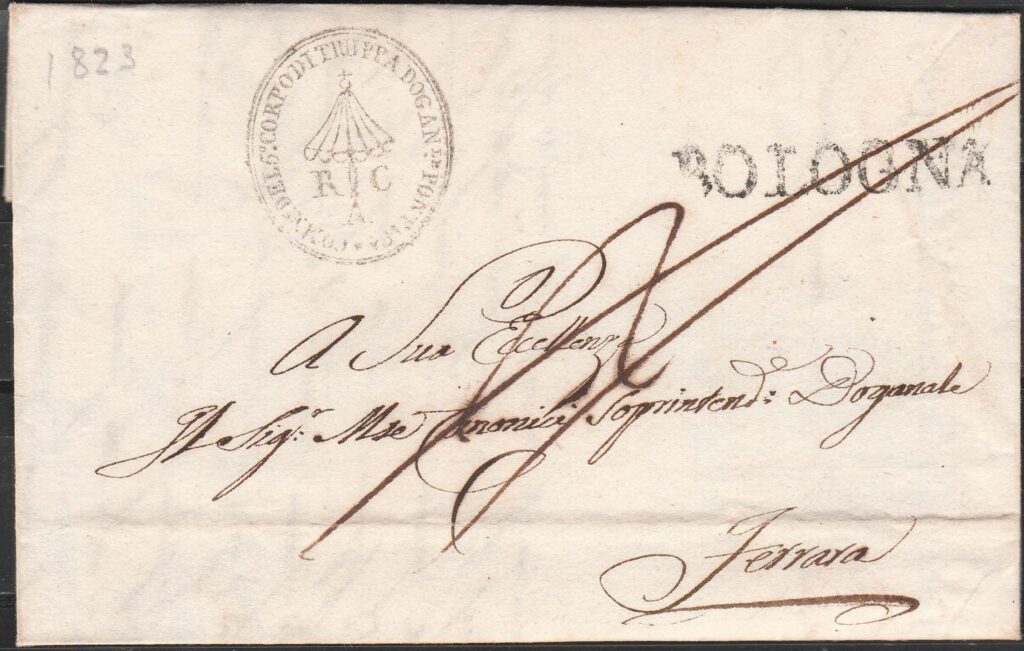 1823
COM. DEL 5º CORPO DI TRUPPA DOGAN.LE PONT.
R C
A
BOLOGNA
A Sua Eccellenza
Il Sig.r Mse Canonici Soprintend.e Doganale
Ferrara